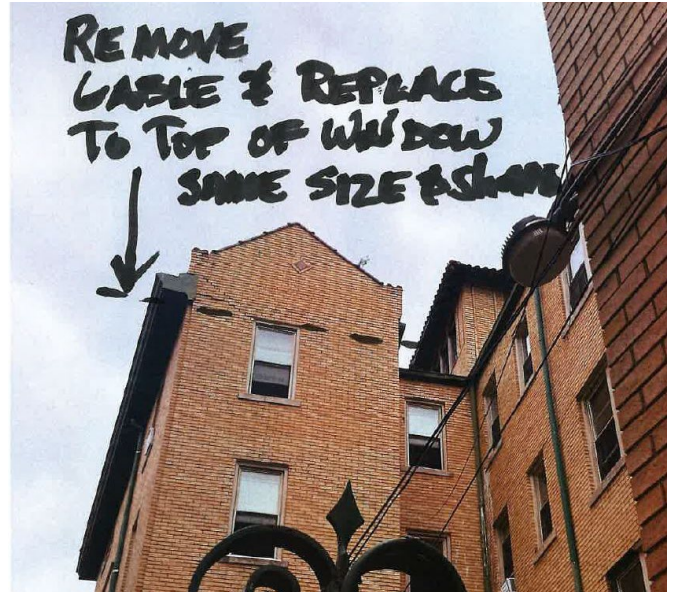 REMOVE
GABLE & REPLACE
TO TOP OF WINDOW
SAME SIZE & SHAPE